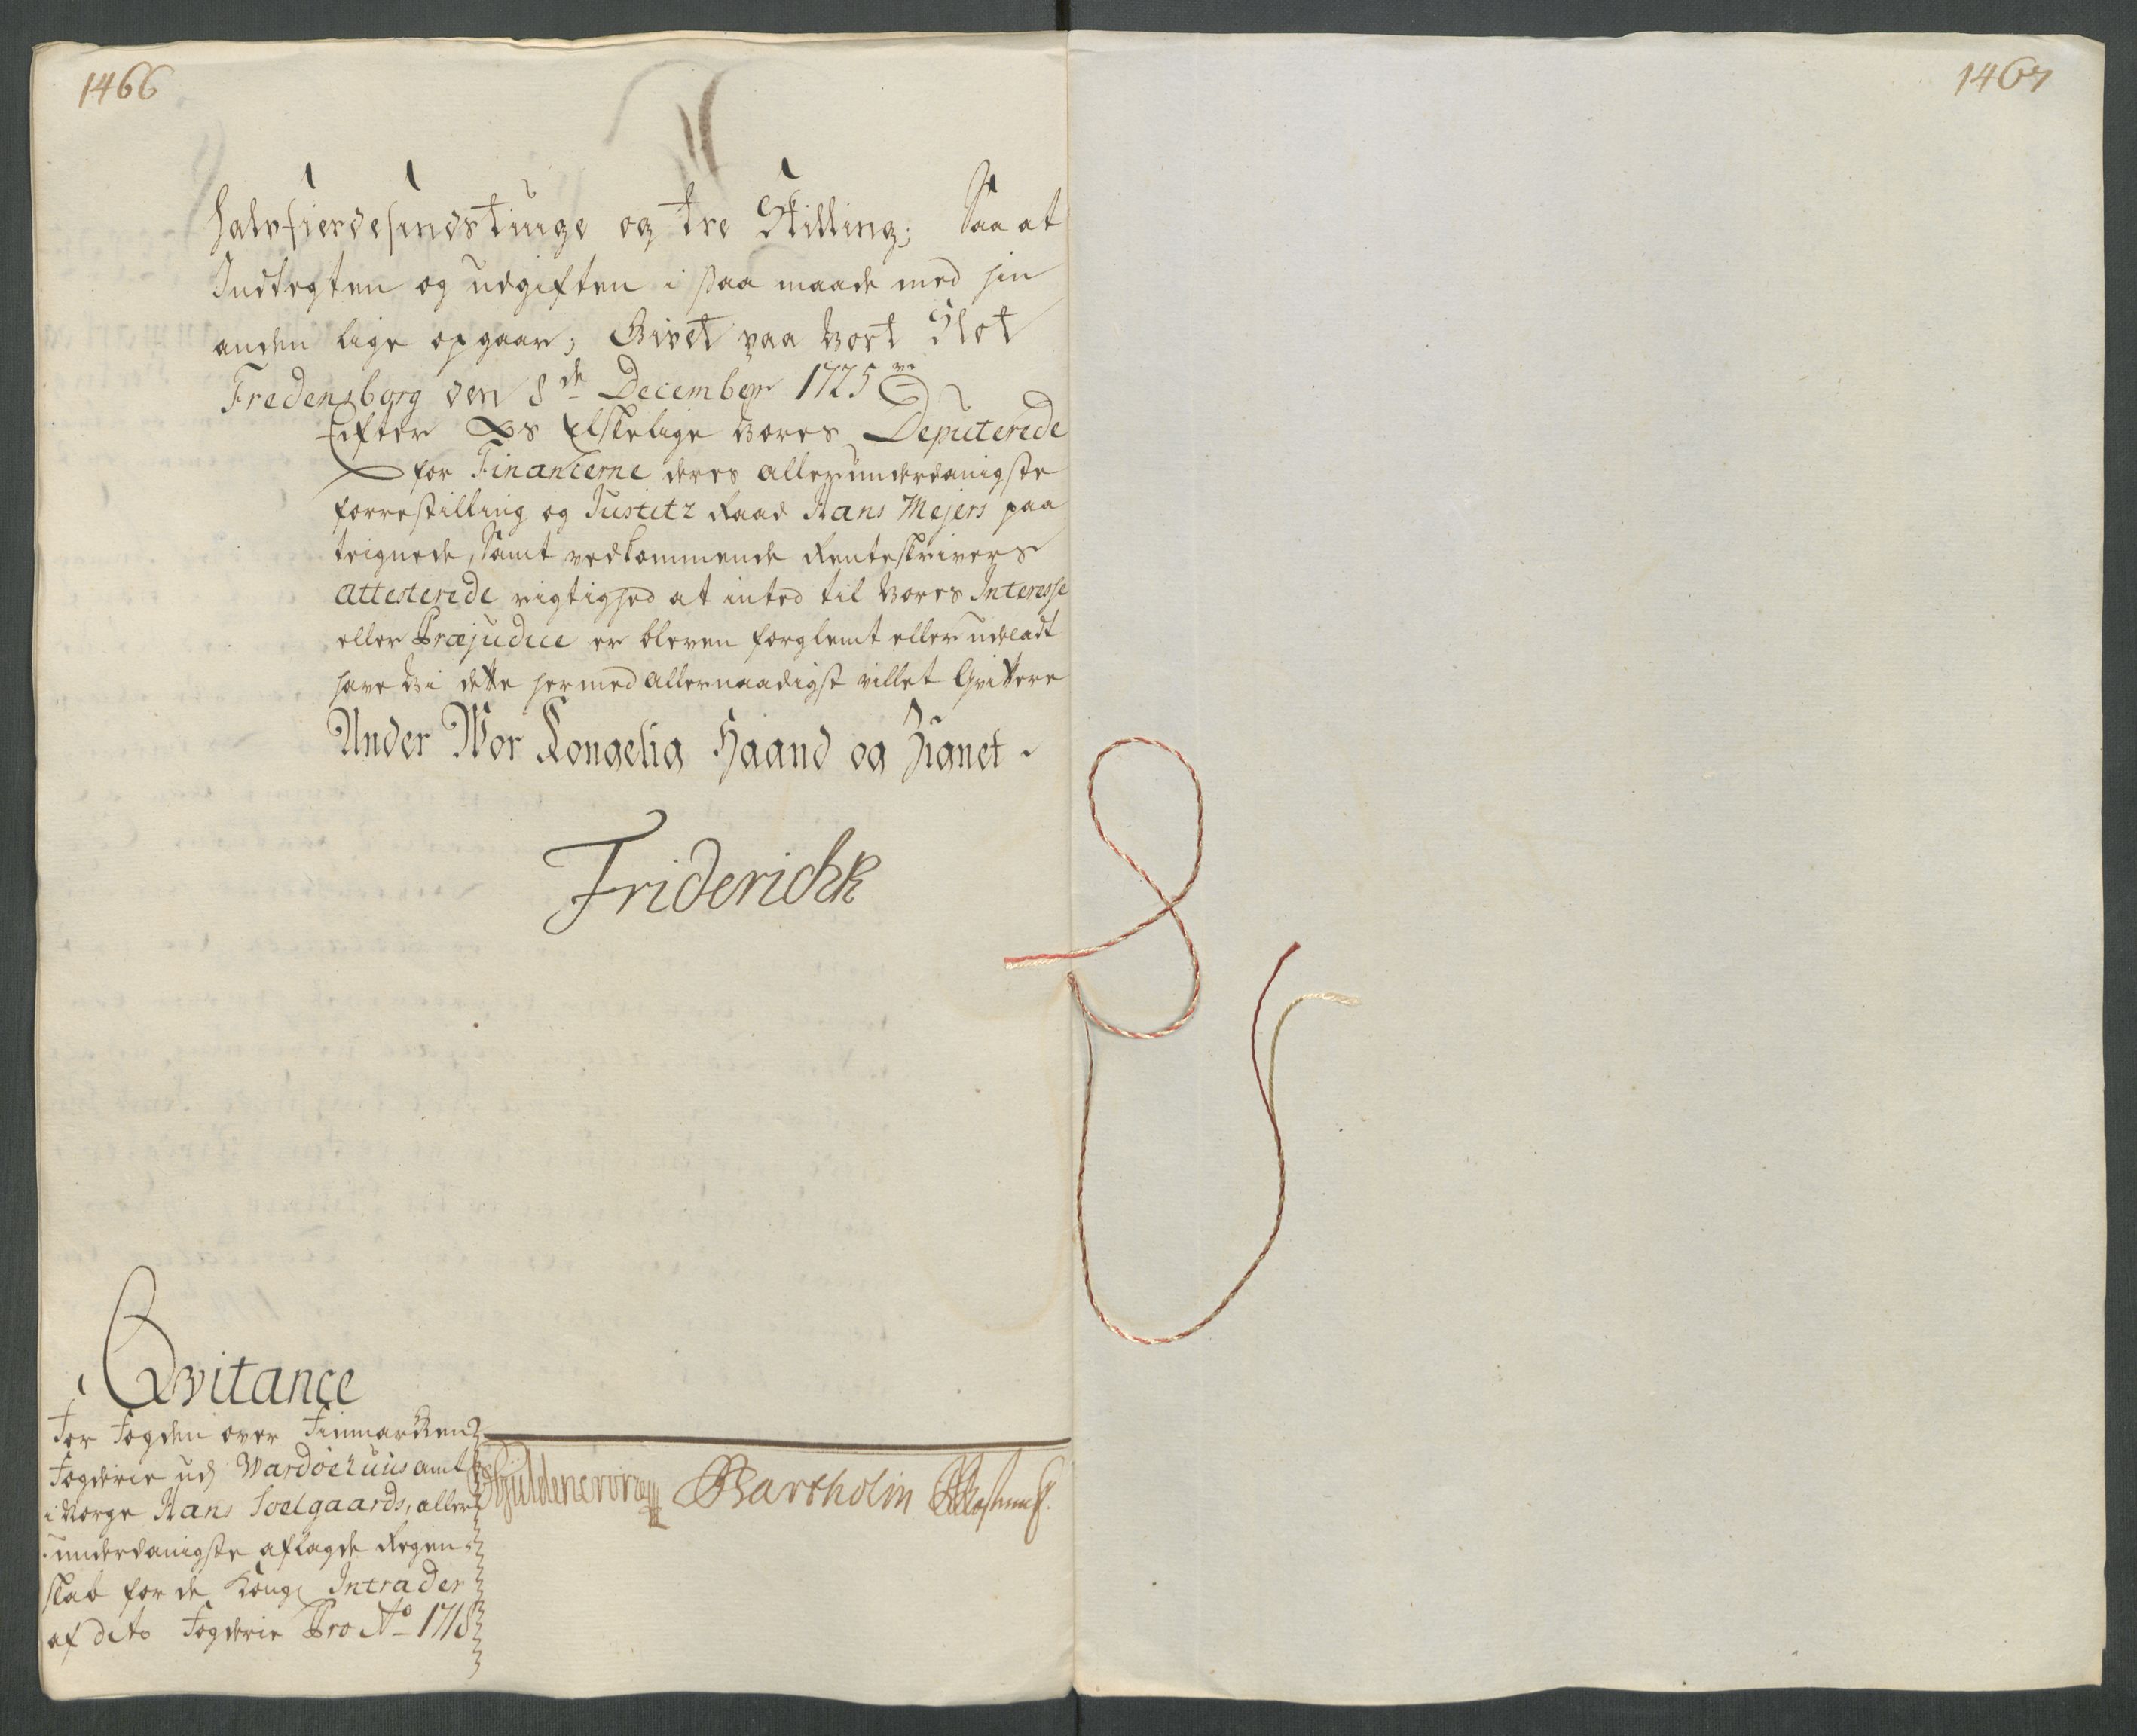 1466
1467
halvfierdesindstiuge og tre Skilling; Saa at
Indtegten og udgiften i saa maade med hin
anden lige opgaar; Givet paa Vort Slot
Fredensborg den 8de December 1725
Efter Os Elskelige Vores Deputerede
for Financerne deres allerunderdanigste
forrestilling og Justitz Raad Hans Mejers paa
teignede, Samt vedkommende Renteskrivers
attesterede rigtighed at inted til Vores Interesse
eller Præjudice er bleven forglemt eller udeladt
have Vi dette hermed allernaadigst villet Qvittere
Under Wor Kongelig Haand og Zignet
Friderichk
Qvitance
For Fogden over Finmarkens
Fogderie udj Wardøehuus amt
i Norge Hans Soelgaards, aller
underdanigste aflagde Regen
skab for de Kongl Intrader
af dito Fogderie Pro Ao 1718
Gyldencrone Bartholin